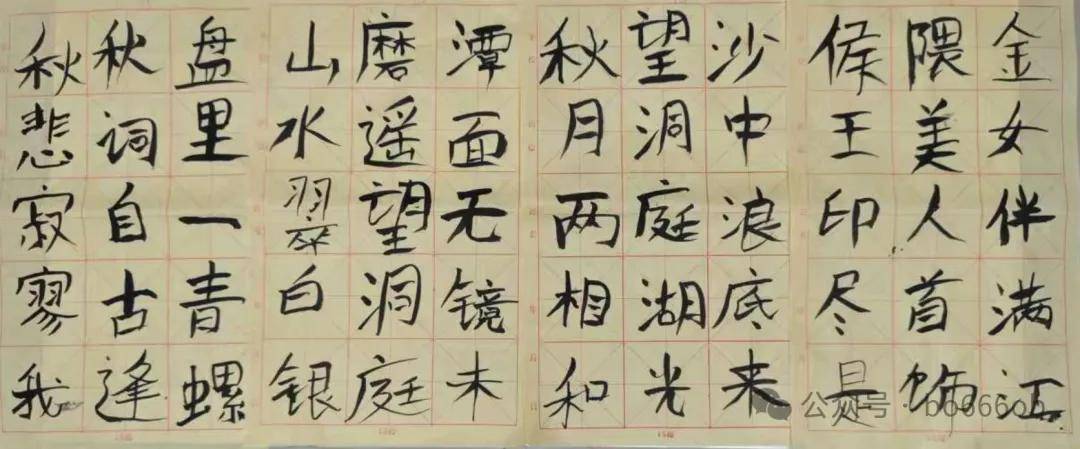 金女伴满江
隈美人首饰
侯王印尽是
沙中浪底来
望洞庭湖光
秋月两相和
潭面无镜未
磨遥望洞庭
山水翠白银
盘里一青螺
秋词自古逢
秋悲寂寥我
公众号 ·